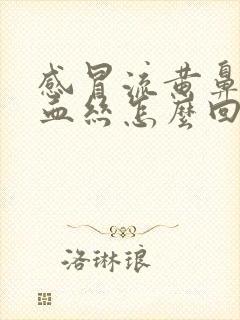 感冒流黄鼻
血丝怎麼回
洛琳琅